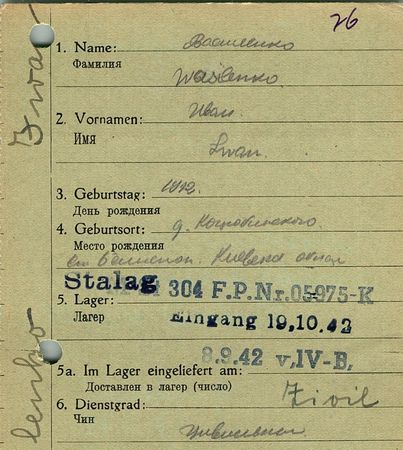 26
1. Name: Василенко
Фамилия
Wasilenko
2. Vornamen: Иван
Имя
Iwan
3. Geburtstag: 1912.
День рождения
4. Geburtsort: д.
Место рождения
Киевск
Stalag 304 F.P.Nr.05975-K
5. Lager:
Лагер
Eingang 19.10.42
8.9.42 v,IV-B,
5a. Im Lager eingeliefert am:
Доставлен в лагер (число)
6. Dienstgrad: Zivil
Чин
Iwan
lenko